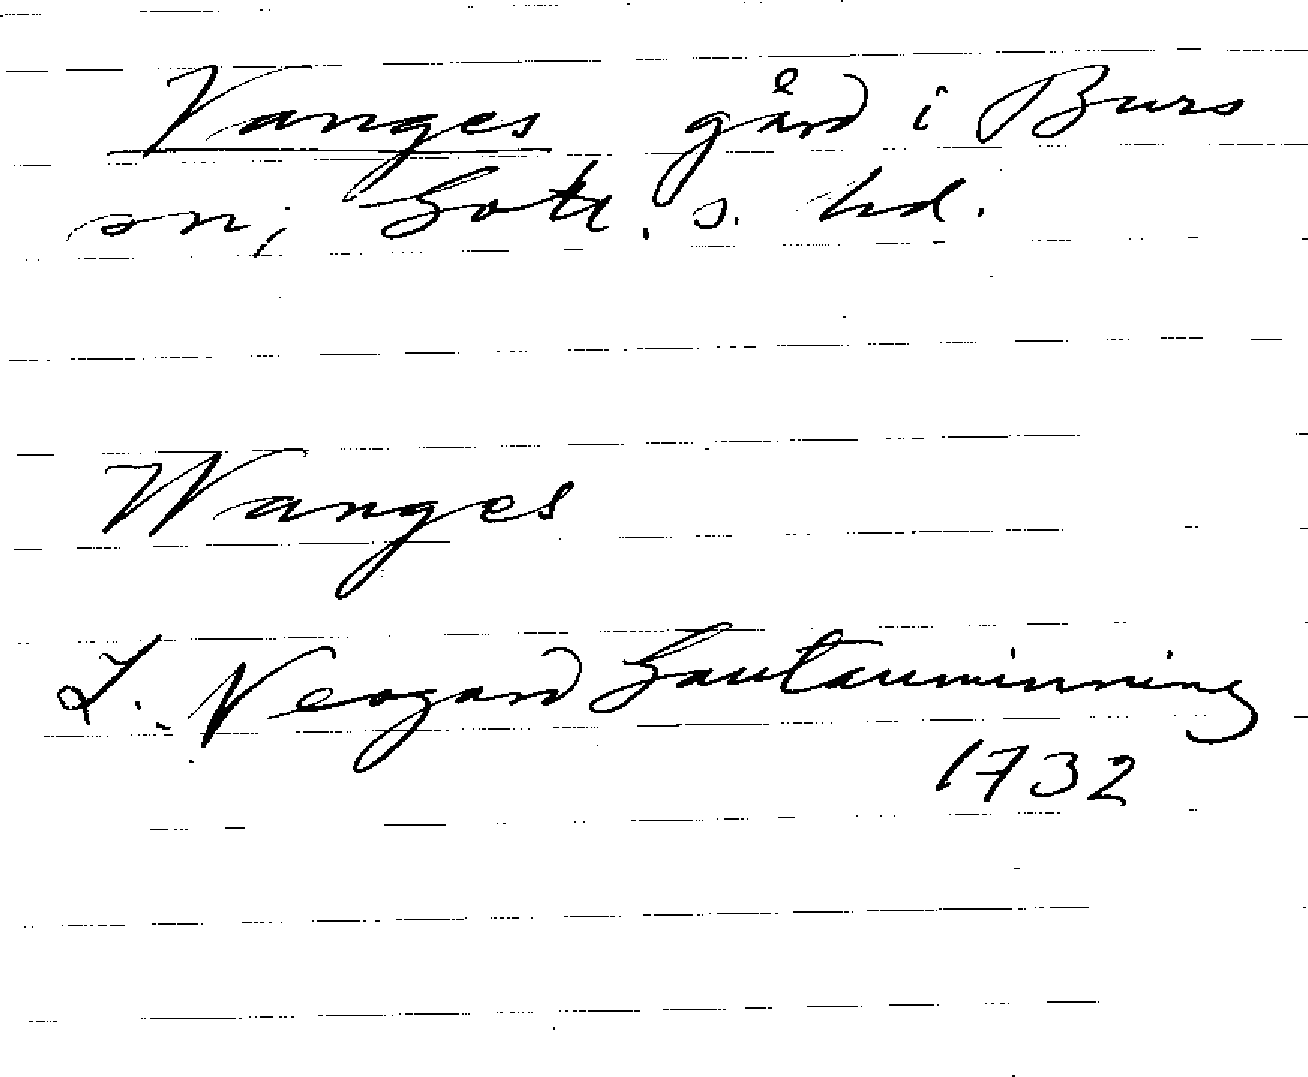 Vanges gård i Burs
sn, Gotl. s. hd.
Wanges
L. Neogard Gautauminning
1732